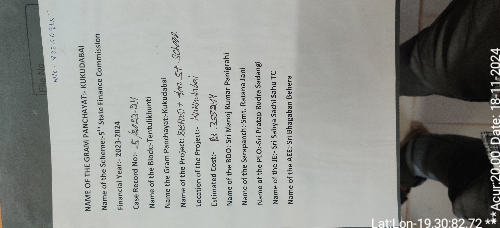 NAME OF THE GRAM PANCHAYAT:- KUKUDABAI
Name of the Scheme:-5th State Finance Commission
Financial Year:- 2023-2024
Case Record No:- 5/2023-24
Name of the Block:-Tentulikhunti
Name the Gram Panchayat-Kukudabai
Name of the Project:
Location of the Project:- Kukudabai
Estimated Cost:- Rs.
Name of the BDO: Sri Manoj Kumar Panigrahi
Name of the Sarapanch: Smt. Ratana Jani
Name of the PLO:-Sri Pratap Rudra Sadangi
Name of the JE:- Sri Sahya Sachi Sahu TC
Name of the AEE: Sri Bhagaban Behera
Lat:Lon-19.30:82.72 ***Acur:2000. Date: 18:11:2024